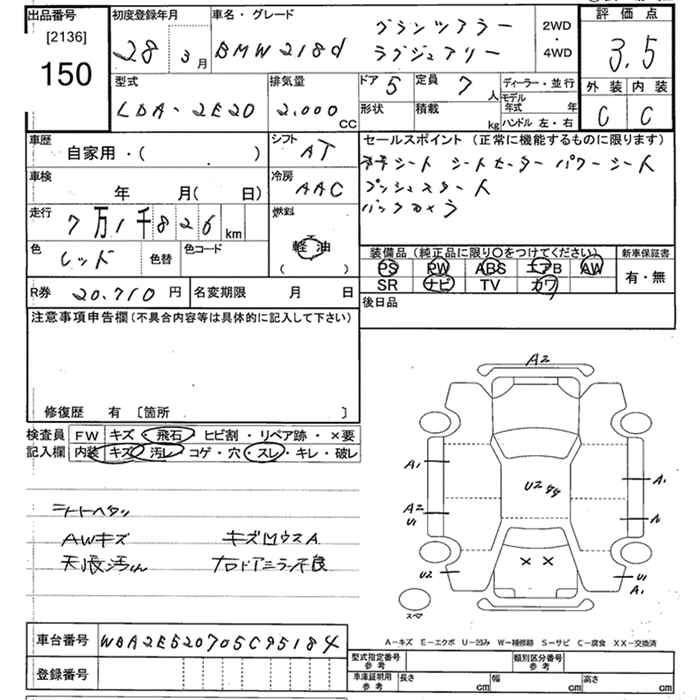 出品番号
[2136]
150
初度登録年月
28 3月
車名・グレード
BMW 218d グランツアラー
ラグジュアリー
2WD
・
4WD
評価点
3.5
外装 内装
C C
型式
LDA-2E20
排気量
2,000
CC
ドア 5
定員 7 人
形状
積載
kg
ディーラー・並行
モデル年式 年
ハンドル 左・右
車歴
自家用・( )
シフト
AT
車検
年 月( 日)
冷房
AAC
走行
7万1千826 km
燃料
軽油
( )
色
レッド
色替
色コード
R券 20,710 円
名変期限 月 日
セールスポイント (正常に機能するものに限ります)
シート シートヒーター パワーシート
プッシュスタート
バックカメラ
装備品(純正品に限り〇をつけてください)
PS PW ABS エアB AW
SR ナビ TV カワ
新車保証書
有・無
後日品
注意事項申告欄(不具合内容等は具体的に記入して下さい)
修復歴 有 〔箇所 〕
検査員 FW キズ・飛石・ヒビ割・リペア跡・×要
記入欄 内装 キズ・汚レ・コゲ・穴・スレ・キレ・破レ
シートヘタリ
AWキズ
天張汚れ
右ドアミラー不良
A2
A1
A1
U2
A2
U1
U2
U1
A1
× ×
スペア
A-キズ E-エクボ U-凹み W-補修跡 S-サビ C-腐食 XX-交換済
車台番号 WBA2E520705C95184
登録番号
型式指定番号
参考
類別区分番号
参考
車庫証明用
参考
長さ cm 幅 cm 高さ cm